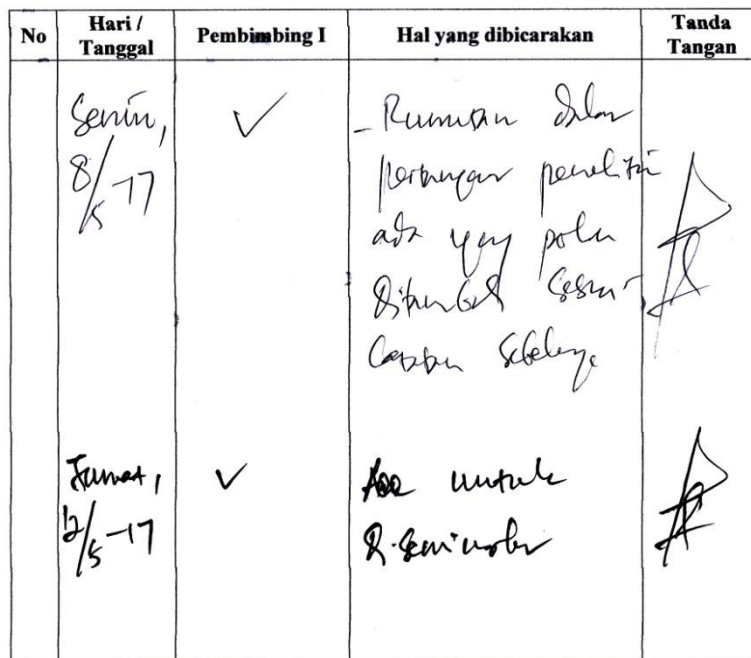 No Hari / Tanggal Pembimbing I Hal yang dibicarakan Tanda Tangan
Senin, ✓ - Rumusan dalam
8/5-17 penelitian
ada yang perlu
ditambah sesuai
catatan sebelumnya
Jumat, ✓ Acc untuk
12/5-17 di-seminarkan